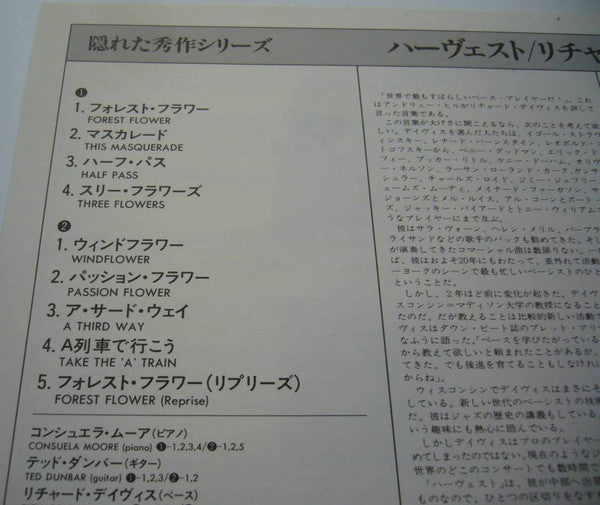 隠れた秀作シリーズ
ハーヴェスト/リチャ
❶
1. フォレスト・フラワー
FOREST FLOWER
2. マスカレード
THIS MASQUERADE
3. ハーフ・パス
HALF PASS
4. スリー・フラワーズ
THREE FLOWERS
❷
1. ウィンドフラワー
WINDFLOWER
2. パッション・フラワー
PASSION FLOWER
3. ア・サード・ウェイ
A THIRD WAY
4. A列車で行こう
TAKE THE 'A' TRAIN
5. フォレスト・フラワー(リプリーズ)
FOREST FLOWER (Reprise)
コンシュエラ・ムーア(ピアノ)
CONSUELA MOORE (piano) ❶-1,2,3,4/❷-1,2,5
テッド・ダンバー(ギター)
TED DUNBAR (guitar) ❶-1,2,3/❷-1,2
リチャード・デイヴィス(ベース)
「世界で最もすばらしいベース・プレイヤーだ！」、これ
はアンドリュー・ヒルがリチャード・デイヴィスを評して
言った言葉である。
この言葉が大げさに聞こえるなら、次のことを考えて欲
しい。デイヴィスを選んだ人たちは、イゴール・ストラヴ
ィンスキー、レナード・バーンスタイン、レオポルド・ス
トコフスキーから、ベニー・グッドマン、エリック・ド
フィー、ブッカー・リトル、ケニー・ドーハム、オリヴ
ー・ネルソン、ラーサン・ローランド・カーク、ガンサ
シュラー、チャールズ・ロイド、ジミー・ジュフリー
ェームズ・ムーディ、メイナード・ファーガソン、サ
ジョーンズとメル・ルイス、アル・コーンとズート・
ズ、ジャッキー・バイアードとトニー・ウィリアムス
うなプレイヤーにまで及ぶ。
彼はサラ・ヴォーン、ヘレン・メリル、バーブラ
ライサンドなどの歌手のバックも勤めてきた。そ
が演奏してきたコマーシャル曲は数限りない。一
ば、彼はおよそ20年にもわたって、並外れて活動
ーヨークのシーンで最も忙しいベーシストのひと
ということだ。
しかし、2年ほど前に変化が起きた。デイヴ
スコンシン=マディソン大学の教授になること
たのだ。だが教えることは比較的新しい活動で
ヴィスはダウン・ビート誌のブレット・プリ
なふうに語った。「ベースを学びたがっている
から教えて欲しいと頼まれたことがあるが、
てきた。でも後進を育てることもしなければ
からね」
ウィスコンシンでデイヴィスはまさにそ
している。新しい世代のベーシストの技術
だ。彼はジャズの歴史の講義もしている。
いう趣味にも熱心に励んでいる。
しかしデイヴィスはプロのプレイヤー
めてしまったのではない。現在のようなジ
世界のどこのコンサートでも数時間で
「ハーヴェスト」は、彼が中部へ出発
ものなので、ひとつの区切りをなす